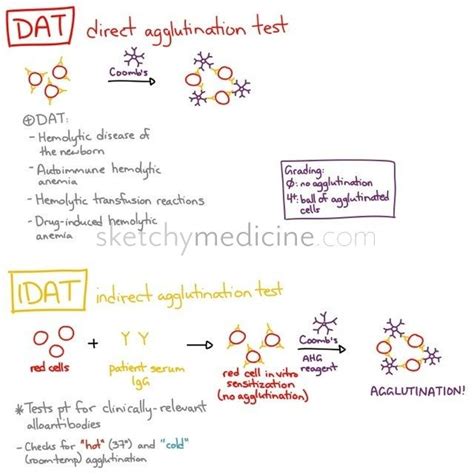 DAT direct agglutination test
Coomb's
⊕DAT:
- Hemolytic disease of
the newborn
- Autoimmune hemolytic
anemia
- Hemolytic transfusion reactions
- Drug-induced hemolytic
anemia
Grading:
∅: no agglutination
4+: ball of agglutinated
cells
sketchymedicine.com
IDAT indirect agglutination test
red cells
+
Y Y
patient serum
IgG
red cell in vitro
sensitization
(no agglutination)
Coomb's
AHG
reagent
AGGLUTINATION!
*Tests pt for clinically-relevant
alloantibodies
- Checks for "hot" (37°) and "cold"
(room temp) agglutination